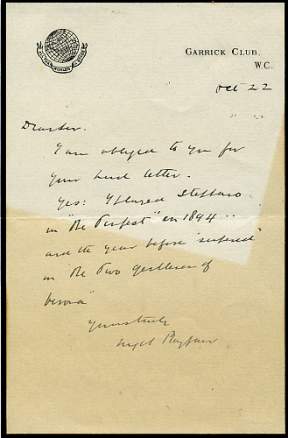 GARRICK CLUB.
W.C.
Oct 22
Dear Sir.
I am obliged to you for
your kind letter.
Yes: I played Stephano
in "The Tempest" in 1894
and the year before "suffered"
in "The Two Gentlemen of
Verona"
Yours truly
Nigel Playfair